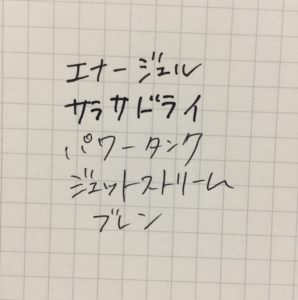 エナージェル
サラサドライ
パワータンク
ジェットストリーム
ブレン